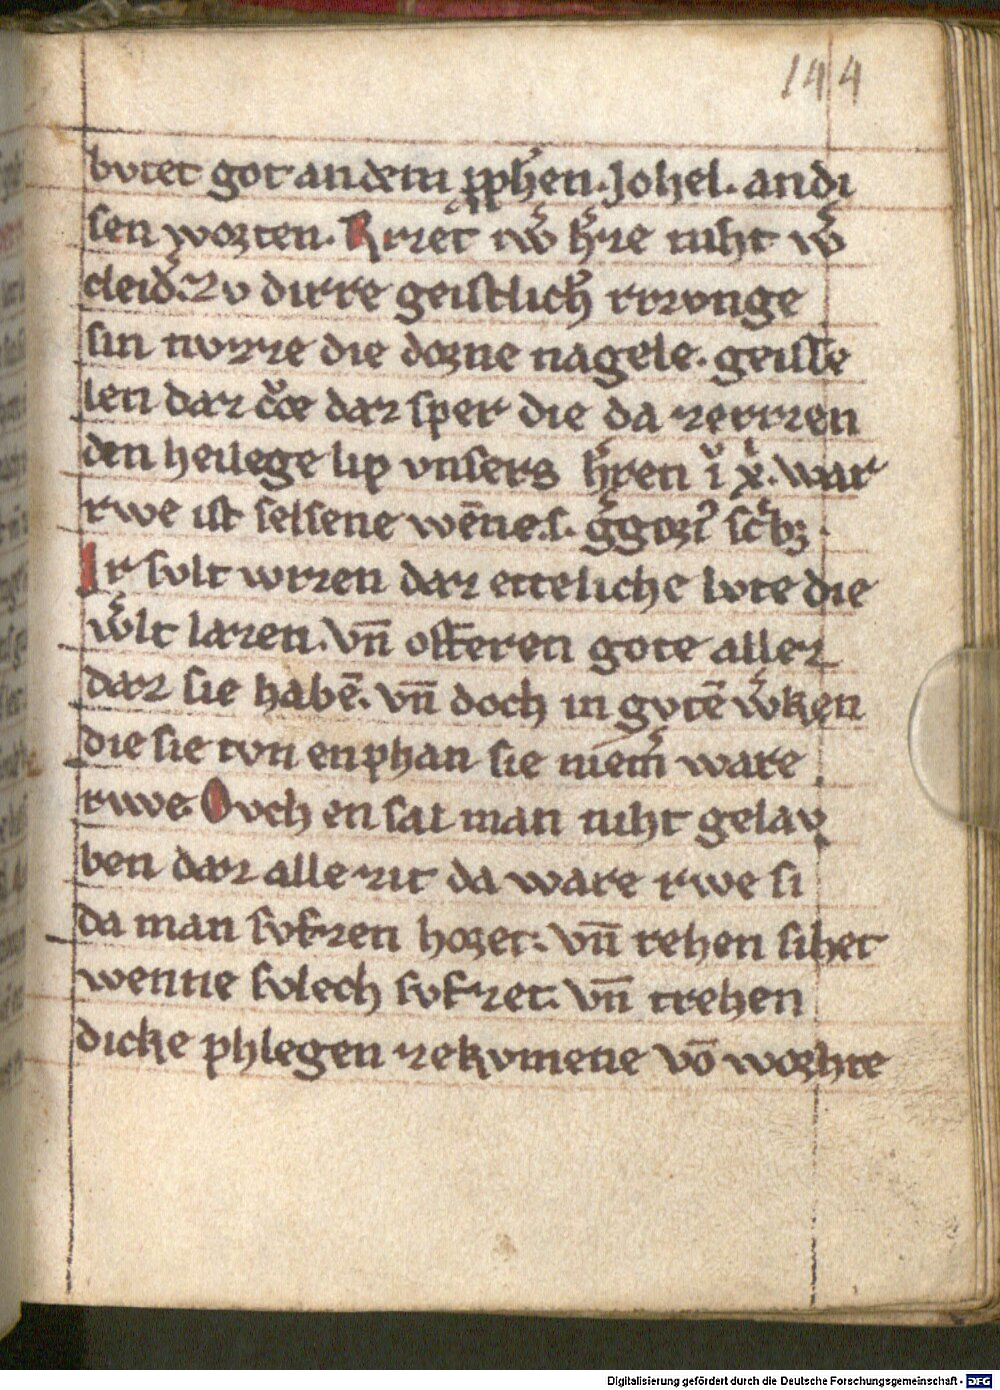 144
butet got an dem ꝓpħen. Johel. an di
sen worten. Rizet iw̃ h̾ze niht w̾
cleid̾. Zv dirre geistlich̾ rizvnge
sin nvzze die dorne nagele. geisse
len daz c̾ce daz sper die da zerizzen
den heilege lip vnsers h̾ren i̾ x̾. War
rwe ist selsene wēne. s. g̾gori9 sc̾bꝫ.
Ir svlt wizzen daz etteliche lvte die
w̾lt lazen. Vn̄ offeren gote allez
daz sie habē. vn̄ doch in gvtē w̾ken
die sie tvn enphan sie niem̄ ware
rwe. Ovch en sal man niht gelav
ben daz alle zit da ware rwe si
da man svfzen horet. Vn̄ trehen sihet
wenne svlech svfzet. Vn̄ trehen
dicke phlegen zekvmene vō vorhte
Digitalisierung gefördert durch die Deutsche Forschungsgemeinschaft - DFG